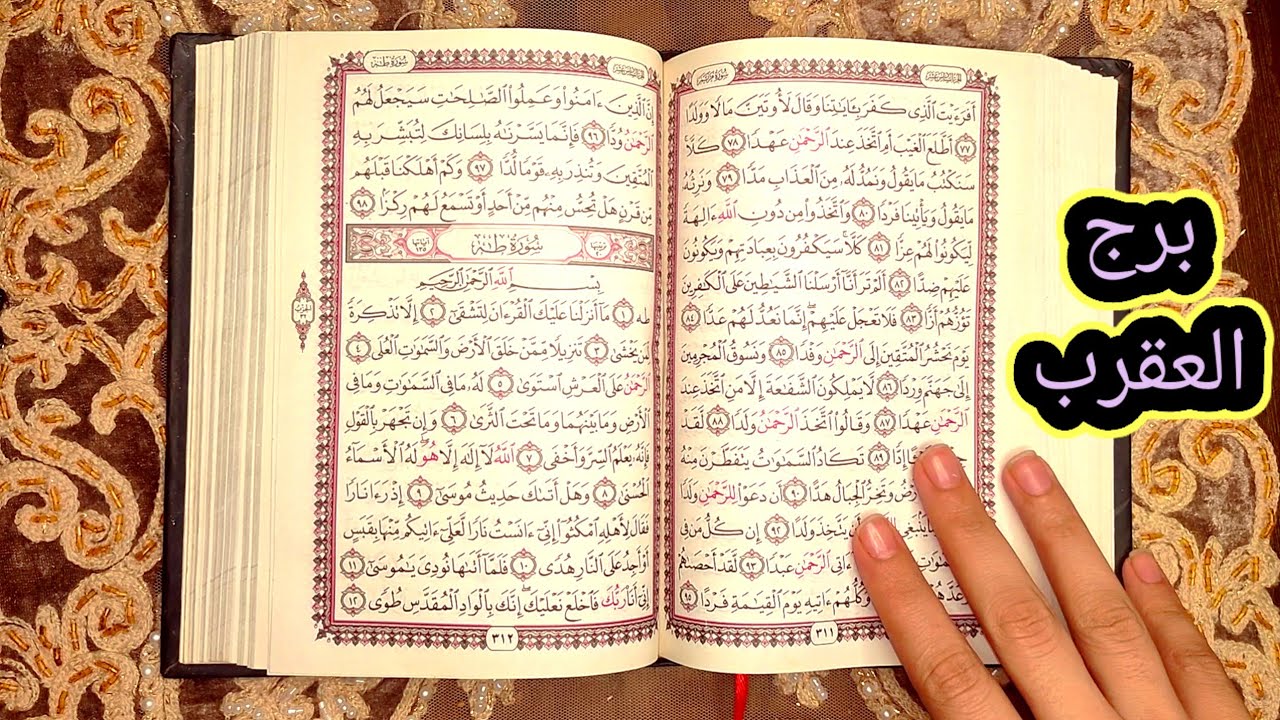 الجزء السادس عشر
سورة مريم
أفرءيت الذى كفر بـٔايتنا وقال لأوتين مالا وولدا
٧٧ أطلع الغيب أم اتخذ عند الرحمن عهدا ٧٨ كلا
سنكتب ما يقول ونمد له من العذاب مدا ٧٩ ونرثه
ما يقول ويأتينا فردا ٨٠ واتخذوا من دون الله ءالهة
ليكونوا لهم عزا ٨١ كلا سيكفرون بعبادتهم ويكونون
عليهم ضدا ٨٢ ألم تر أنا أرسلنا الشيطين على الكفرين
تؤزهم أزا ٨٣ فلا تعجل عليهم إنما نعد لهم عدا ٨٤
يوم نحشر المتقين إلى الرحمن وفدا ٨٥ ونسوق المجرمين
إلى جهنم وردا ٨٦ لا يملكون الشفعة إلا من اتخذ عند
الرحمن عهدا ٨٧ وقالوا اتخذ الرحمن ولدا ٨٨ لقد
إدا ٨٩ تكاد السموت يتفطرن منه
وتخر الجبال هدا ٩٠ أن دعوا للرحمن ولدا
أن يتخذ ولدا ٩٢ إن كل من فى
ءاتى الرحمن عبدا ٩٣ لقد أحصىهم
وكلهم ءاتيه يوم القيمة فردا ٩٥
٣١١
الجزء السادس عشر
سورة طه
إن الذين ءامنوا وعملوا الصلحت سيجعل لهم
الرحمن ودا ٩٦ فإنما يسرنه بلسانك لتبشر به
المتقين وتنذر به قوما لدا ٩٧ وكم أهلكنا قبلهم
من قرن هل تحس منهم من أحد أو تسمع لهم ركزا ٩٨
سورة طه
بسم الله الرحمن الرحيم
طه ١ ما أنزلنا عليك القرءان لتشقى ٢ إلا تذكرة
لمن يخشى ٣ تنزيلا ممن خلق الأرض والسموت العلى ٤
الرحمن على العرش استوى ٥ له ما فى السموت وما فى
الأرض وما بينهما وما تحت الثرى ٦ وإن تجهر بالقول
فإنه يعلم السر وأخفى ٧ الله لا إله إلا هو له الأسماء
الحسنى ٨ وهل أتىك حديث موسى ٩ إذ رءا نارا
فقال لأهله امكثوا إنى ءانست نارا لعلى ءاتيكم منها بقبس
أو أجد على النار هدى ١٠ فلما أتىها نودى يموسى ١١
إنى أنا ربك فاخلع نعليك إنك بالواد المقدس طوى ١٢
٣١٢
برج
العقرب